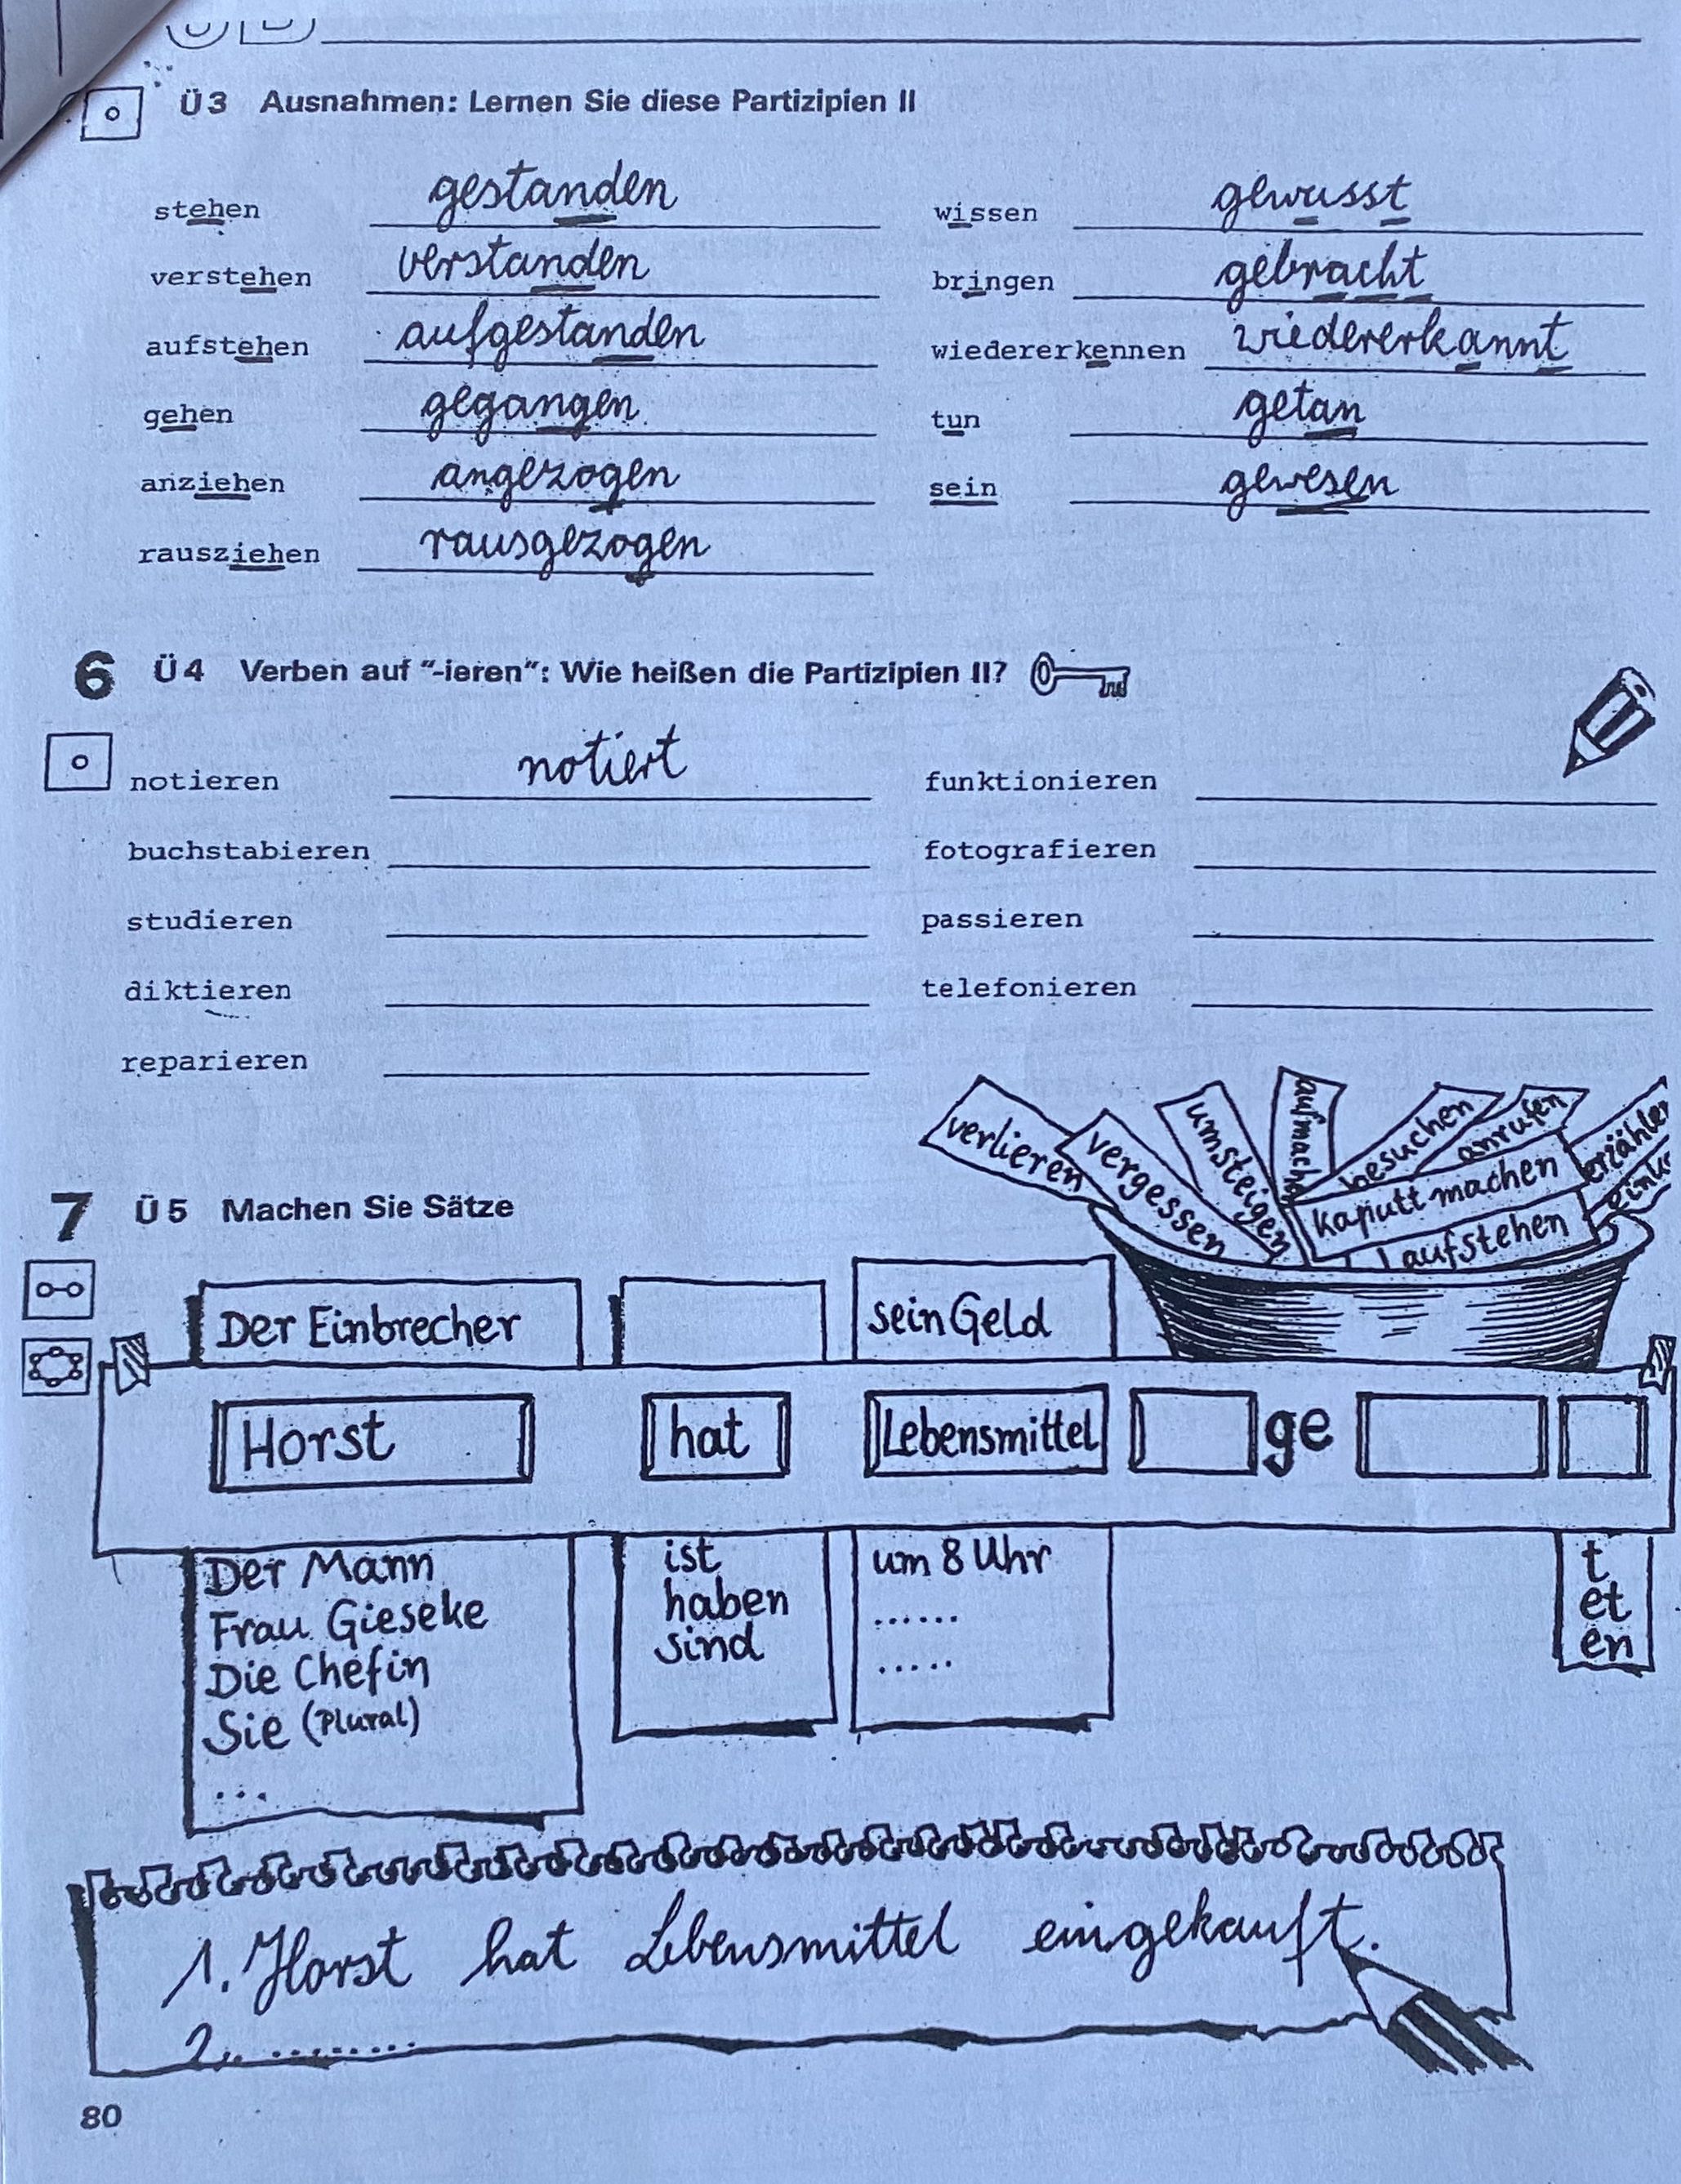 Ü 3 Ausnahmen: Lernen Sie diese Partizipien II
stehen gestanden wissen gewusst
verstehen verstanden bringen gebracht
aufstehen aufgestanden wiedererkennen wiedererkannt
gehen gegangen tun getan
anziehen angezogen sein gewesen
rausziehen rausgezogen
6 Ü 4 Verben auf "-ieren": Wie heißen die Partizipien II?
notieren notiert funktionieren
buchstabieren fotografieren
studieren passieren
diktieren telefonieren
reparieren
verlieren
vergessen
umsteigen
besuchen
anrufen
kaputt machen
aufstehen
7 Ü 5 Machen Sie Sätze
Der Einbrecher sein Geld
Horst hat Lebensmittel ge
Der Mann ist um 8 Uhr t
Frau Gieseke haben ...... et
Die Chefin sind ..... en
Sie (Plural)
...
1. Horst hat Lebensmittel eingekauft.
2. .........
80